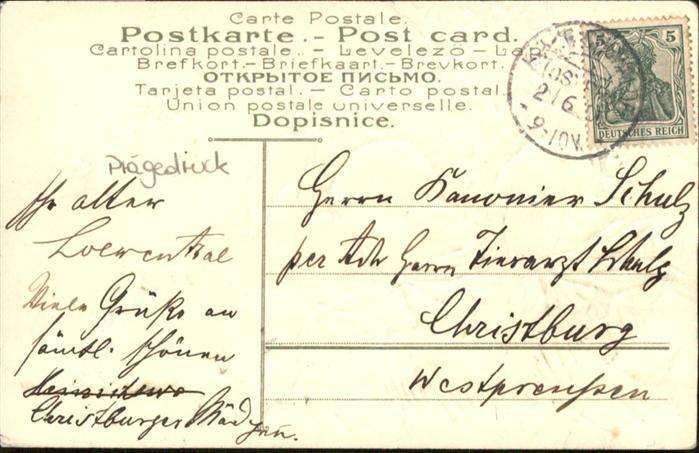 Carte Postale.
Postkarte.- Post card.
Cartolina postale. - Levelező-Lap
Brefkort.- Briefkaart.- Brevkort.
ОТКРЫТОЕ ПИСЬМО.
Tarjeta postal. - Carto postal.
Union postale universelle.
Dopisnice.
2/6
9-10V.
5 5
DEUTSCHES REICH
Prägedruck
Ihr alter
Loewenthal
Viele Grüße an
sämtl. schönen
Christburger Mäd
chen.
Herrn Kanonier Schulz
per Adr Herrn Tierarzt Schulz
Christburg
Westpreußen